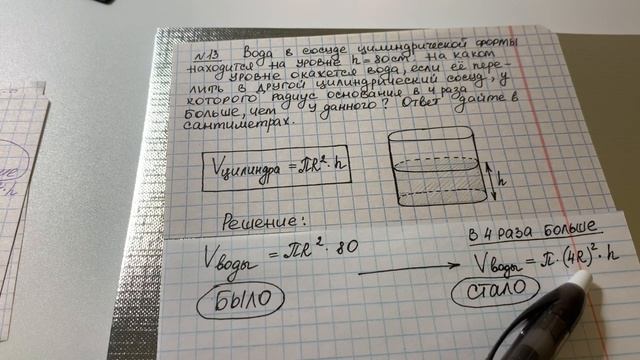 N13 Вода в сосуде цилиндрической формы
находится на уровне h = 80см. На каком
уровне окажется вода, если её пере-
лить в другой цилиндрический сосуд, у
которого радиус основания в 4 раза
больше, чем у данного? Ответ дайте в
сантиметрах.
Vцилиндра = πR²·h
h
Решение:
Vводы = πR²·80
БЫЛО
В 4 РАЗА БОЛЬШЕ
Vводы = π·(4R)²·h
СТАЛО